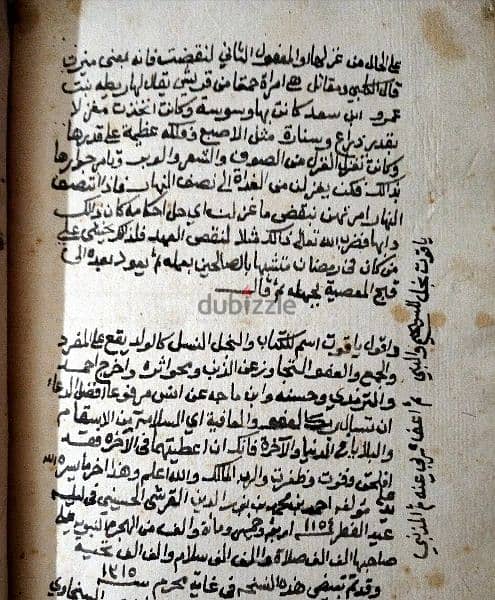 على الحال من غزلها او المفعول الثاني لنقضت فانه بمعنى صيرت
قال الكلبي ومقاتل هي امرأة حمقا من قريش يقال لها ريطه بنت
عمرو ابن سعد كانت بها وسوسة وكانت اتخذت مغزلا
بقدر ذراع وسنارة مثل الاصبع وفلكه عظيمة على قدرها
وكانت تغزل الغزل من الصوف والشعر والوبر وتامر جوارها
بذالك فكن يغزلن من الغداة الى نصف النهار فاذا انتصف
النهار امرتهن بنقض ما غزلن اي حل احكامه كان ذالك
دابها فضرب الله تعالى ذالك مثلا لنقض العهد فلذالك خشي على
من كان في رمضان متشبها بالصالحين بعمله ثم يعود بعده الى
قبيح المعصية بجهله ثم قال
dubizzle
واقول ياقوت اسم للكتاب والنجل النسل كالولد يقع على المفرد
والجمع والعفو التجاوز عن الذنب ومحوا اثره واخرج احمد
والترمذي وحسنه وابن ماجه عن انس مرفوعا افضل الدعاء
ان تسال ربك العفو والعافية اي السلامة من الاسقام
والبلايا في الدنيا والآخرة فانك ان اعطيتهما في الآخرة فقد
افلحت وفزت وظفرت والله المالك والله اعلم وهذا اخر ما يسر الله
على مؤلفه احمد بن محمد بن الدين القرشي الحسيني في ليلة
عيد الفطر ١١٥٤ اربع وخمسين ومائة والف من الهجرة النبوية على
صاحبها الف الف صلاة والف الف سلام والف الف تحية
وقد تم تبييض هذه النسخه في غاية محرم سنة ١٣١٥
ياقوت نجل